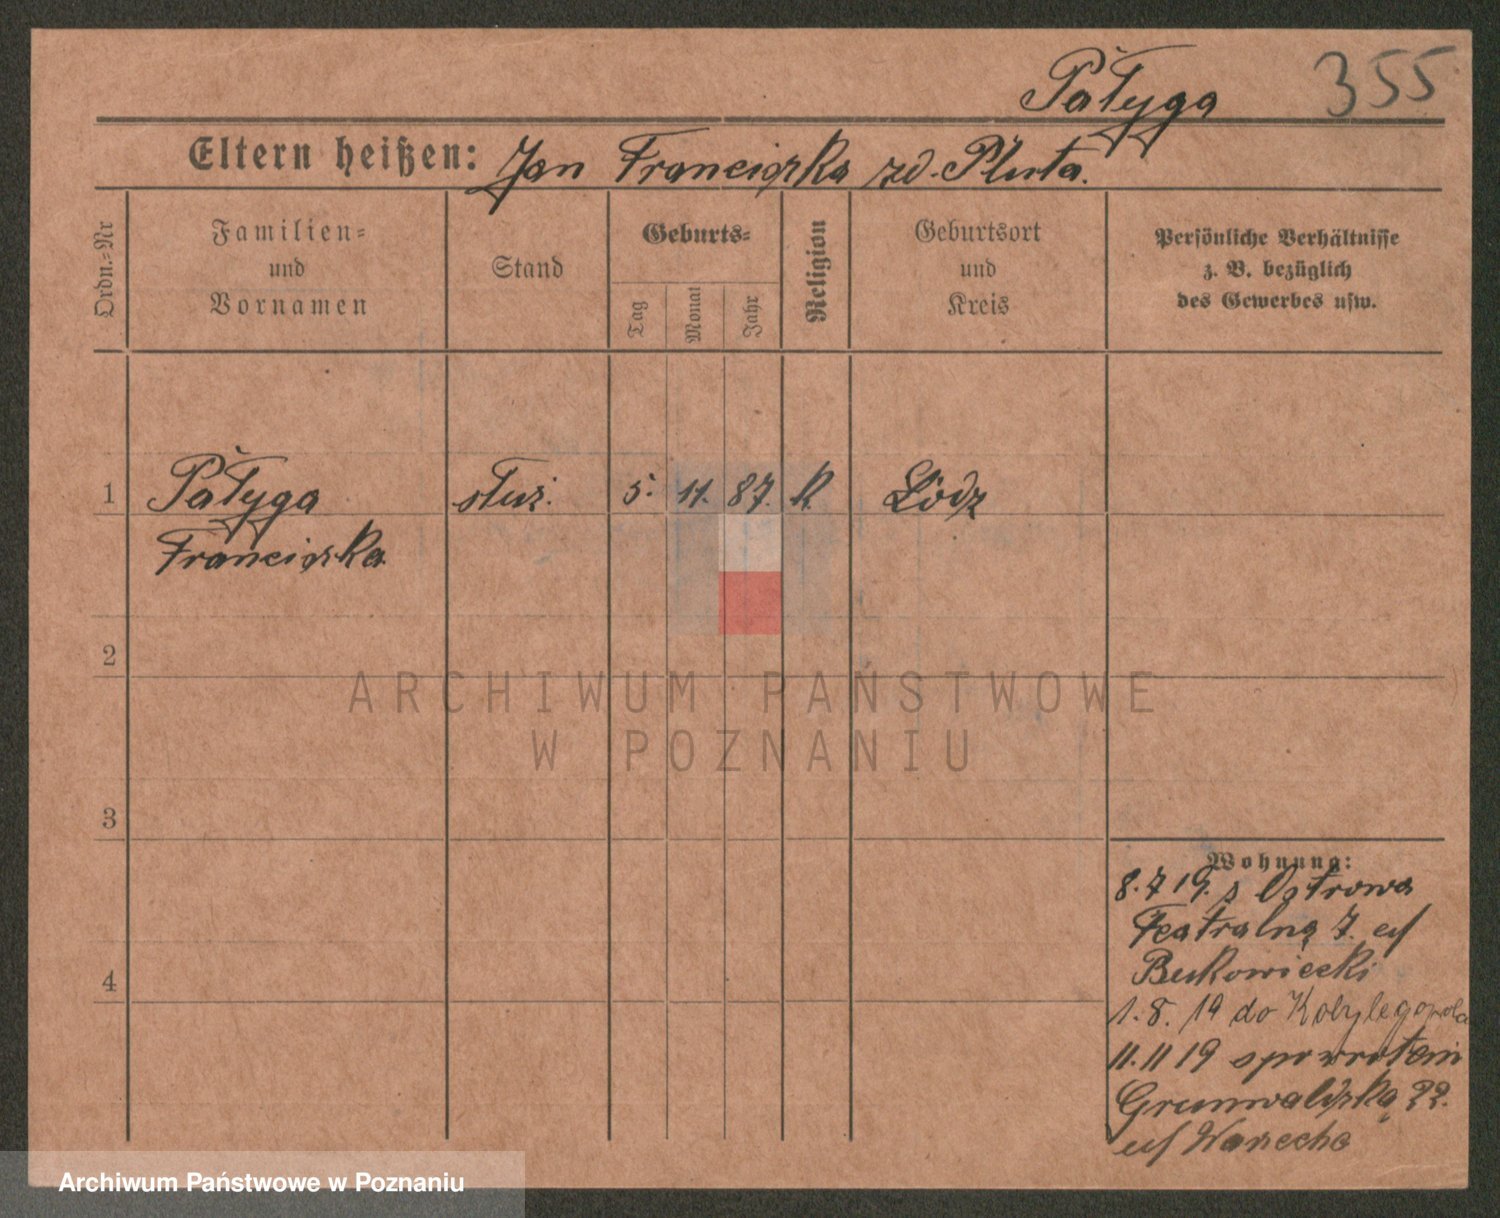 Pałyga 355
Eltern heißen: Jan Franciszka zd. Pluta.
Ordn.-Nr
Familien-
und
Vornamen
Stand
Geburts-
Tag
Monat
Jahr
Religion
Geburtsort
und
Kreis
Persönliche Verhältnisse
z. B. bezüglich
des Gewerbes usw.
1 Pałyga służ. 5. 11. 87. K. Łódz
Franciszka
2
ARCHIWUM PAŃSTWOWE
W POZNANIU
3
Wohnung:
8.7 19. s Ostrowa
Teatralna 7.
Bukowiecki
4
1.8.19 do Kobylegopola
11.11 19 spowrotem
Grunwaldzka 22.
Warzecha
Archiwum Państwowe w Poznaniu